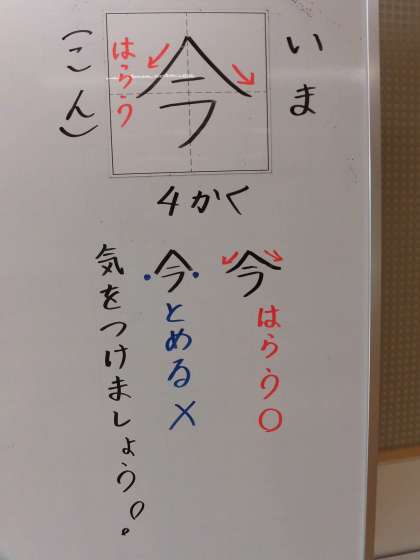 いま
今
はらう
(こん)
4かく
今
はらう○
今
とめる×
気をつけましょう!。